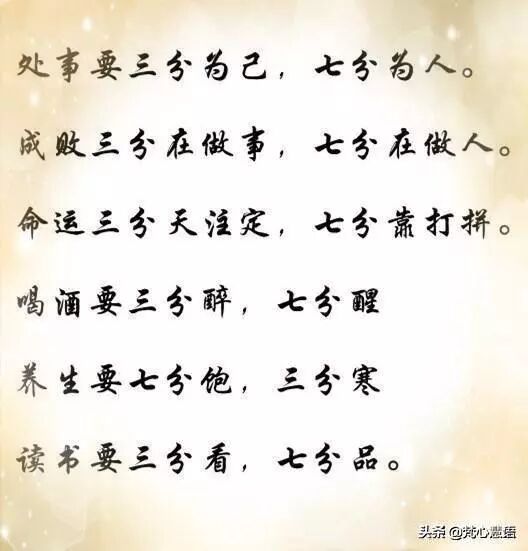 处事要三分为己，七分为人。
成败三分在做事，七分在做人。
命运三分天注定，七分靠打拼。
喝酒要三分醉，七分醒
养生要七分饱，三分寒
读书要三分看，七分品。
头条 @梵心慧语